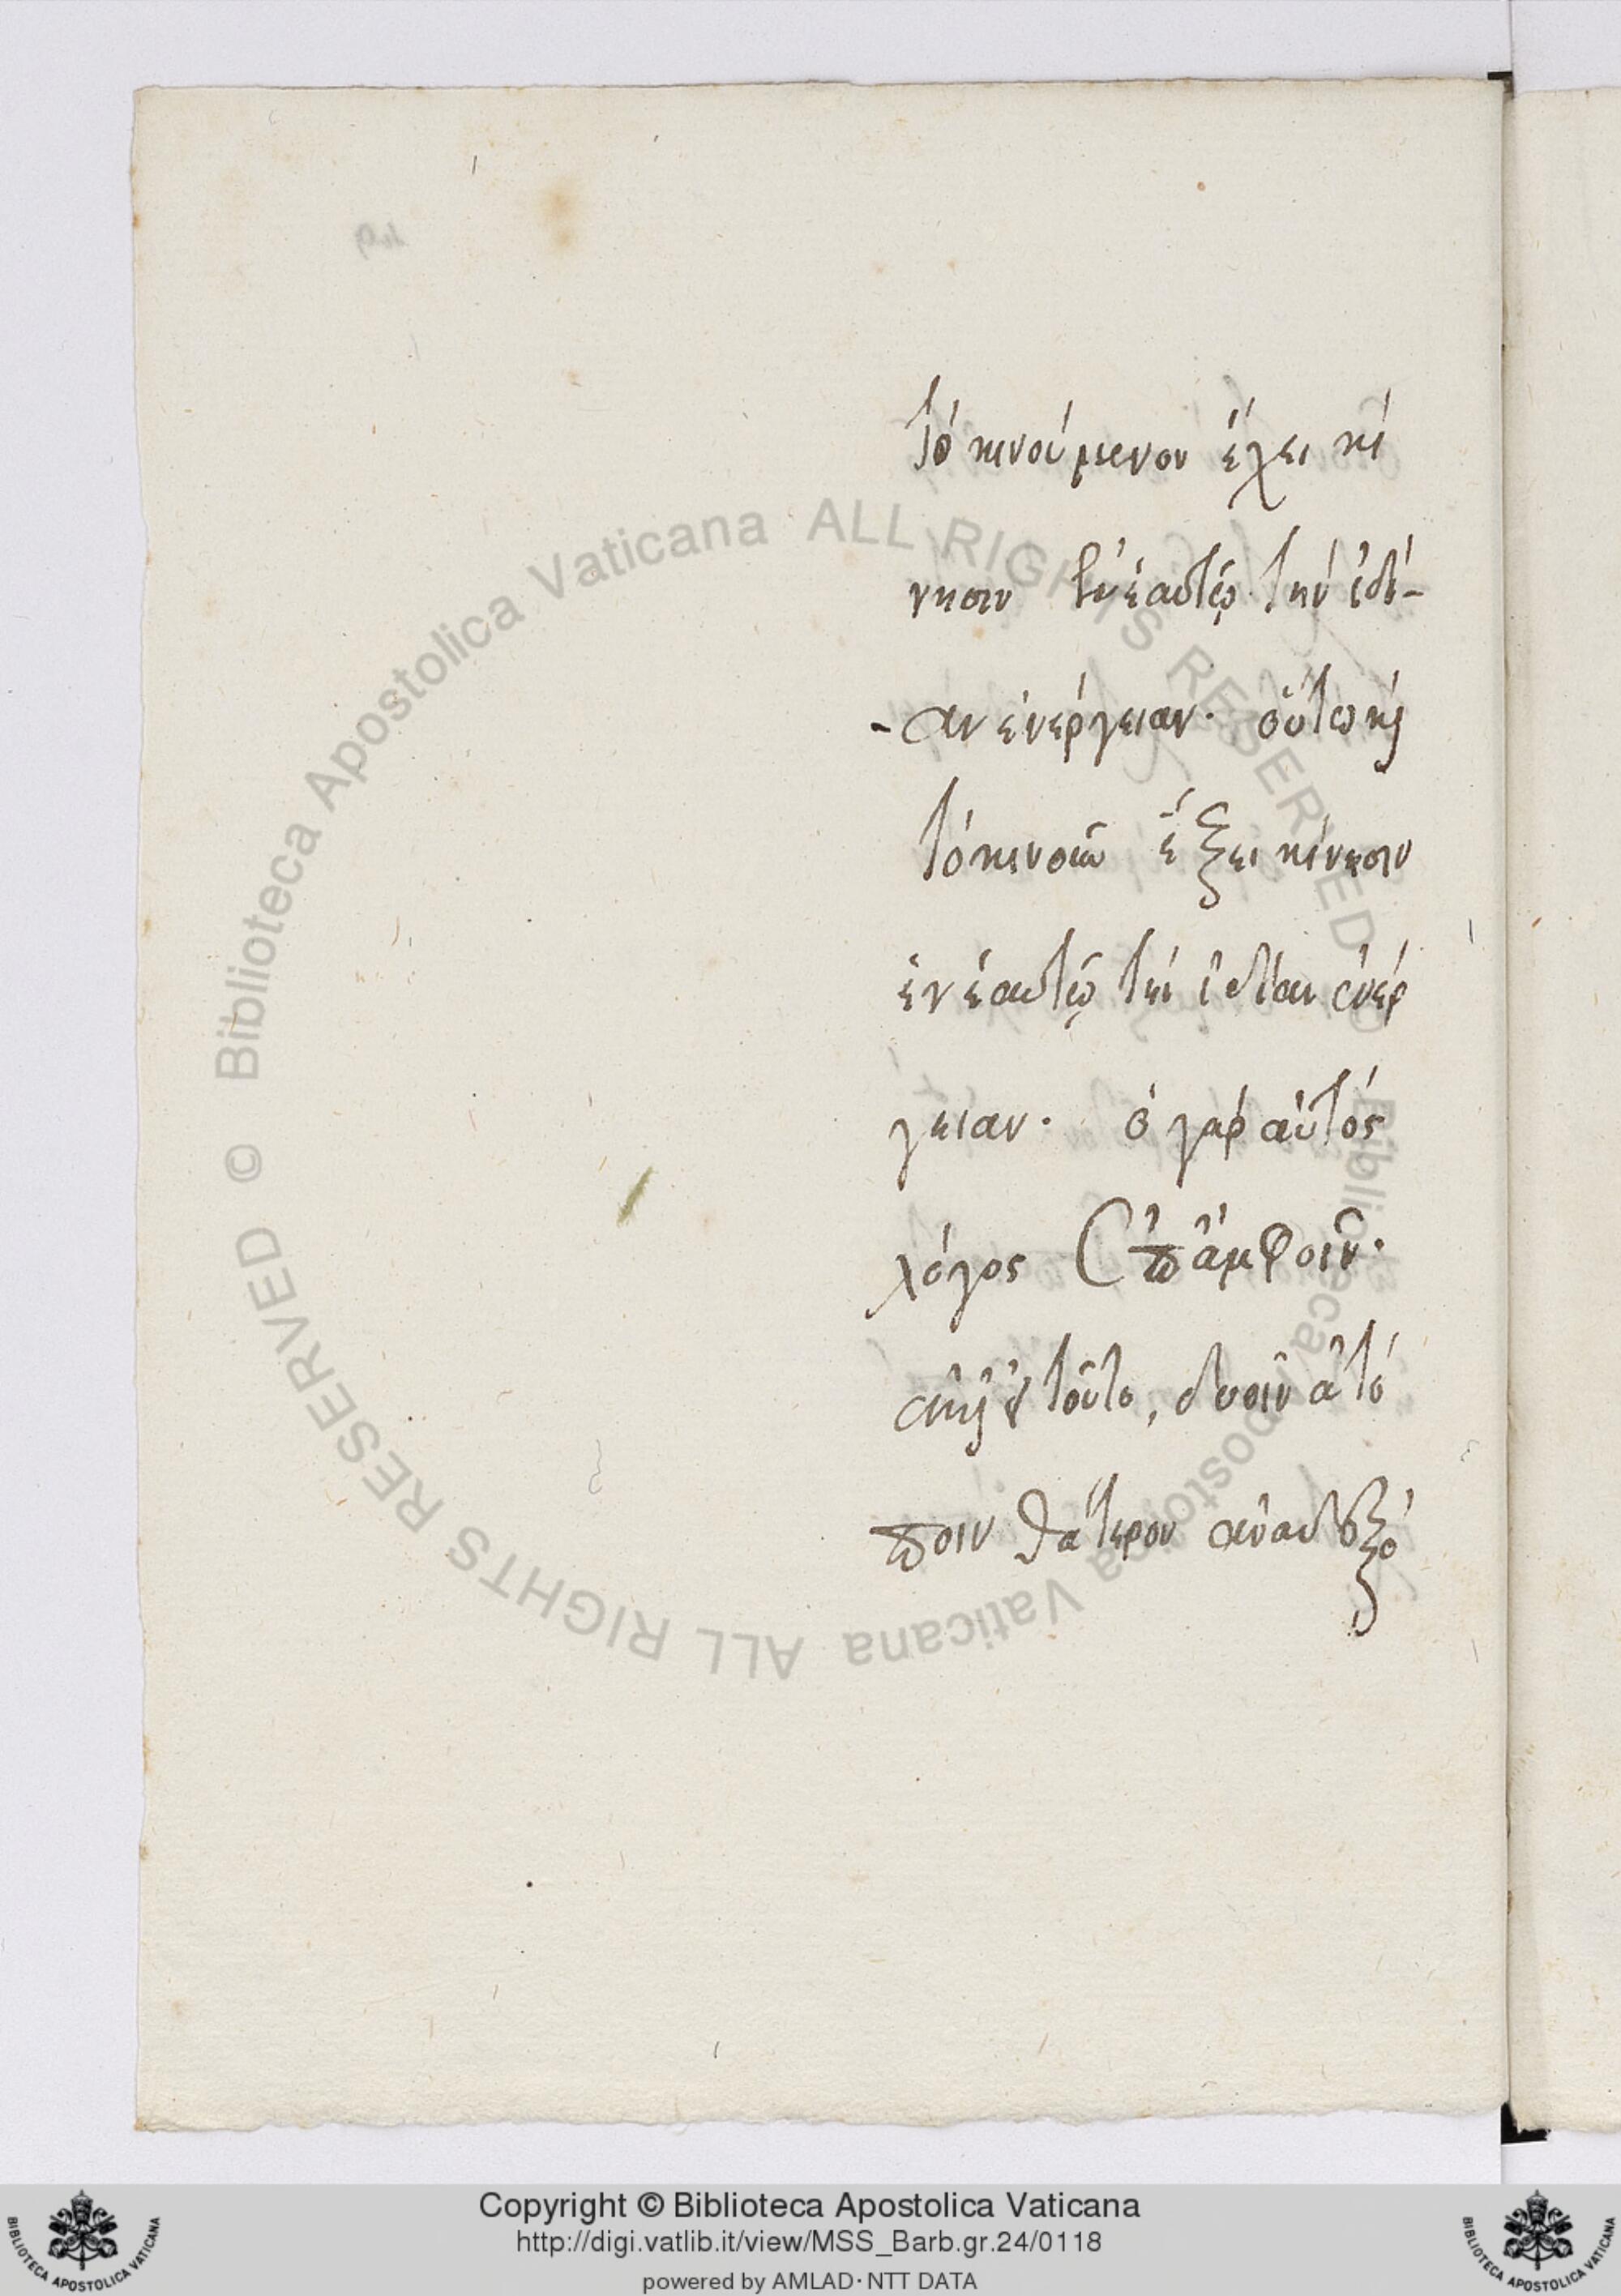 τὸ κινούμενον ἔχει κί
νησιν ἐν ἑαυτῷ τὴν ἰδί-
-αν ἐνέργειαν· οὕτω καὶ
τὸ κινοῦν ἕξει κίνησιν
ἐν ἑαυτῷ τὴν ἰδίαν ἐνέρ
γειαν· ὁ γὰρ αὐτὸς
λόγος ἐπ' ἀμφοῖν·
τοῦτο, δυοῖν ἀτό
ποιν θάτερον ἀναδεξό
© Biblioteca Apostolica Vaticana ALL RIGHTS RESERVED
© Biblioteca Apostolica Vaticana ALL RIGHTS RESERVED
Copyright © Biblioteca Apostolica Vaticana
http://digi.vatlib.it/view/MSS_Barb.gr.24/0118
powered by AMLAD·NTT DATA
BIBLIOTECA APOSTOLICA VATICANA
BIBLIOTECA APOSTOLICA VATICANA